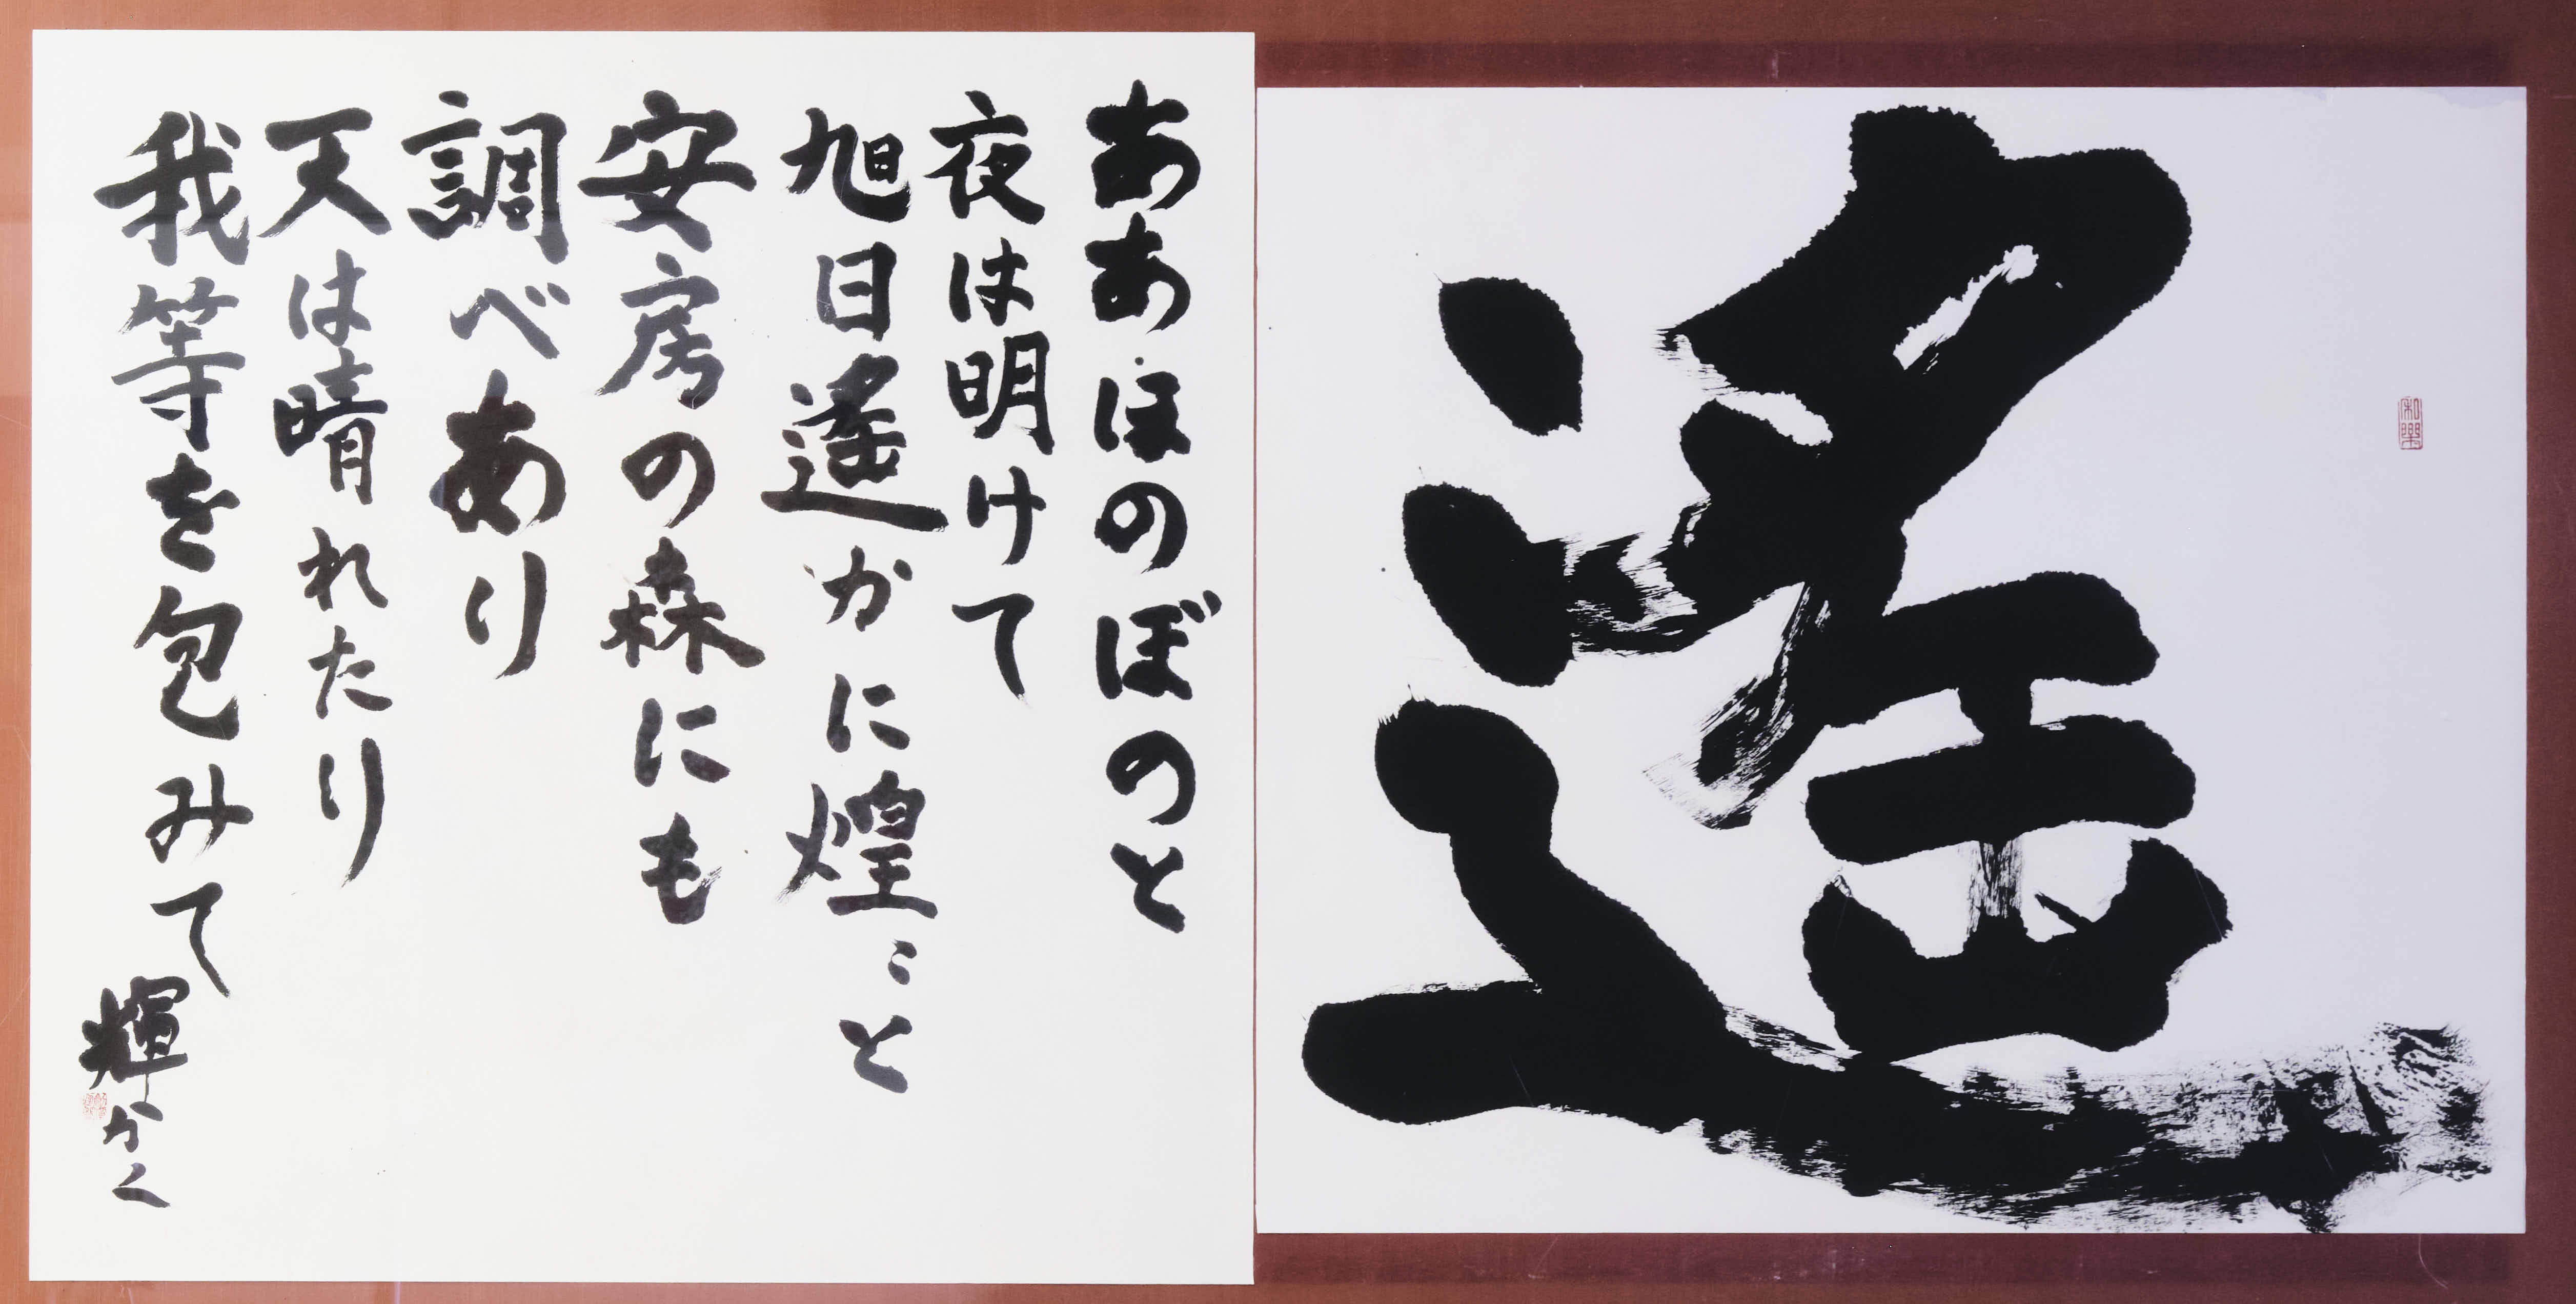 遙
和樂
ああほのぼのと
夜は明けて
旭日遙かに煌々と
安房の森にも
調べあり
天は晴れたり
我等を包みて
輝かく